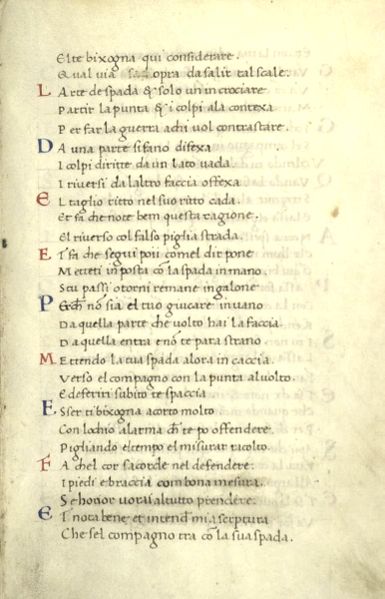 El te bixogna qui considerare.
Qual via s'adopra da salir tal scale.
L Arte de spada & solo un incrociare
Partir la punta & i colpi a la contexa
Per far la guerra a chi vol contrastare.
D A una parte si fano difexa
I colpi diritte da un lato vada
I riversi da laltro faccia offexa
E L taglio ritto nel suo ritto cada.
Et fa che note bem questa ragione.
El riverso col falso piglia strada.
E T fa che segui poii comel dir pone
Metteti in posta cō la spada in mano.
Setu passi o torni remane ingalone
P Erch nō sia el tuo giucare invano
Da quella parte che volto hai la faccia
Da quella entra e nō te para strano
M Ettendo la tua spada alora in caccia.
Verso el compagno con la punta al volto.
E de ferir subito te spaccia
E Sser ti bixogna acorto molto.
Con lochio alarma ch te po offendere.
Pigliando el tempo el misurar racolto.
F A chel cor sacorde nel defendere:
I piedi e braccia com bona mesura.
Se honor vorai al tutto prendere.
E T nota bene et intend mia scriptura
Che sel compagno tra cō la sua spada.